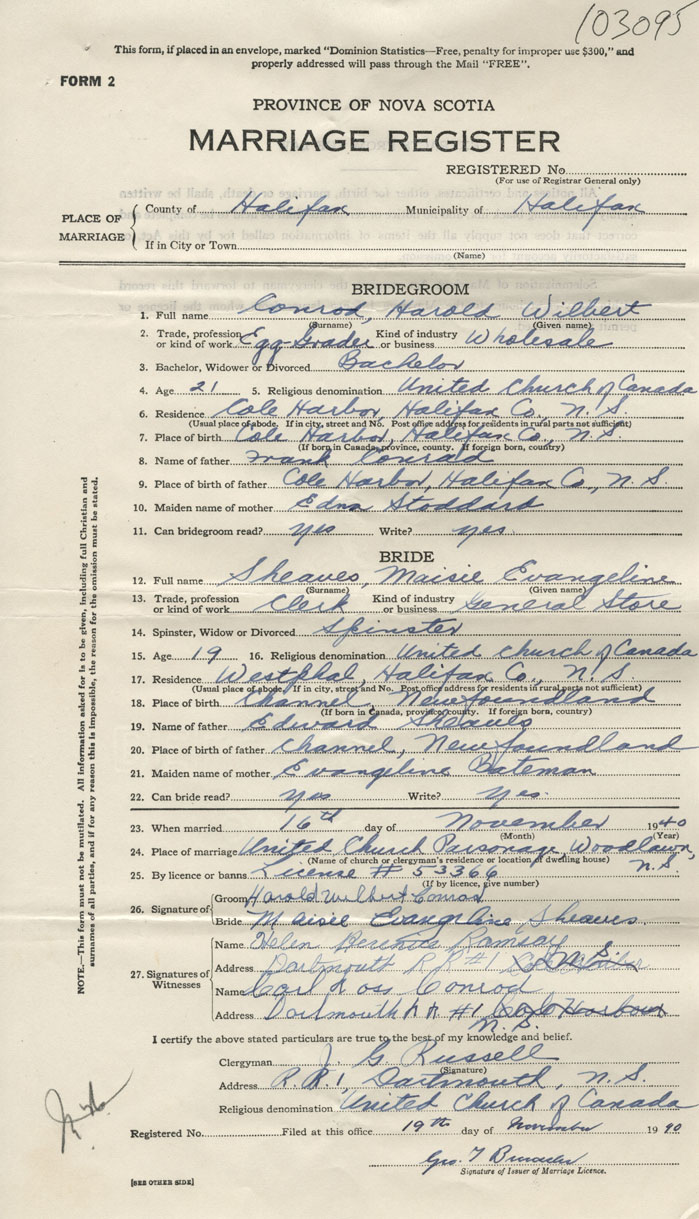 103095
This form, if placed in an envelope, marked “Dominion Statistics—Free, penalty for improper use $300,” and
properly addressed will pass through the Mail “FREE”.
FORM 2
PROVINCE OF NOVA SCOTIA
MARRIAGE REGISTER
REGISTERED No.
(For use of Registrar General only)
PLACE OF MARRIAGE
County of Halifax Municipality of Halifax
If in City or Town
(Name)
BRIDEGROOM
1. Full name Conrod, Harold Wilbert
(Surname) (Given name)
2. Trade, profession or kind of work Egg-Grader Kind of industry or business Wholesale
3. Bachelor, Widower or Divorced Bachelor
4. Age 21 5. Religious denomination United Church of Canada
6. Residence Cole Harbor, Halifax Co., N. S.
(Usual place of abode. If in city, street and No. Post office address for residents in rural parts not sufficient)
7. Place of birth Cole Harbor, Halifax Co., N. S.
(If born in Canada, province, county. If foreign born, country)
8. Name of father Frank Conrod
9. Place of birth of father Cole Harbor, Halifax Co., N. S.
10. Maiden name of mother Edna Stoddard
11. Can bridegroom read? yes Write? yes.
BRIDE
12. Full name Sheaves, Maisie Evangeline
(Surname) (Given name)
13. Trade, profession or kind of work Clerk Kind of industry or business General Store
14. Spinster, Widow or Divorced Spinster
15. Age 19 16. Religious denomination United Church of Canada
17. Residence Westphal, Halifax Co., N. S.
(Usual place of abode. If in city, street and No. Post office address for residents in rural parts not sufficient)
18. Place of birth Channel, Newfoundland
(If born in Canada, province, county. If foreign born, country)
19. Name of father Edward Sheaves
20. Place of birth of father Channel, Newfoundland
21. Maiden name of mother Evangeline Bateman
22. Can bride read? yes Write? yes.
23. When married 16th day of November 1940
(Month) (Year)
24. Place of marriage United Church Parsonage, Woodlawn, N.S.
(Name of church or clergyman's residence or location of dwelling house)
25. By licence or banns License # 53366
(If by licence, give number)
26. Signature of
Groom Harold Wilbert Conrod
Bride Maisie Evangeline Sheaves
27. Signatures of Witnesses
Name Helen Ramsay
Address Dartmouth R R #1 N. S.
Name Carl Ross Conrod
Address Dartmouth R R #1 Cole Harbour
N. S.
I certify the above stated particulars are true to the best of my knowledge and belief.
Clergyman J. G. Russell
(Signature)
Address R. R. 1, Dartmouth, N. S.
Religious denomination United Church of Canada
Registered No. Filed at this office 19th day of November 1940
Geo. T
Signature of Issuer of Marriage Licence.
[SEE OTHER SIDE]
NOTE.—This form must not be mutilated. All information asked for is to be given, including full Christian and
surnames of all parties, and if for any reason this is impossible, the reason for the omission must be stated.